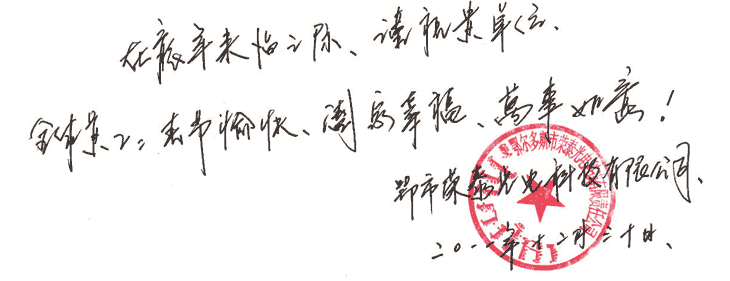 在龙年来临之际、谨祝贵单位.
全体员工：春节愉快、阖家幸福、萬事如意！
鄂市荣泰光电科技有限公司、
二0一一年十二月三十日、
鄂尔多斯市荣泰光电科技有限责任公司